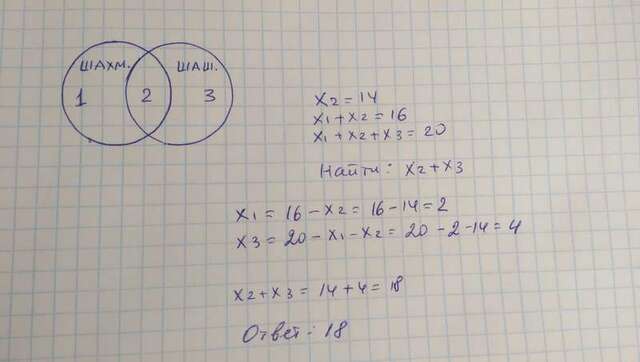 ШАХМ. ШАШ.
1 2 3
x2 = 14
x1 + x2 = 16
x1 + x2 + x3 = 20
Найти: x2 + x3
x1 = 16 - x2 = 16 - 14 = 2
x3 = 20 - x1 - x2 = 20 - 2 - 14 = 4
x2 + x3 = 14 + 4 = 18
Ответ: 18